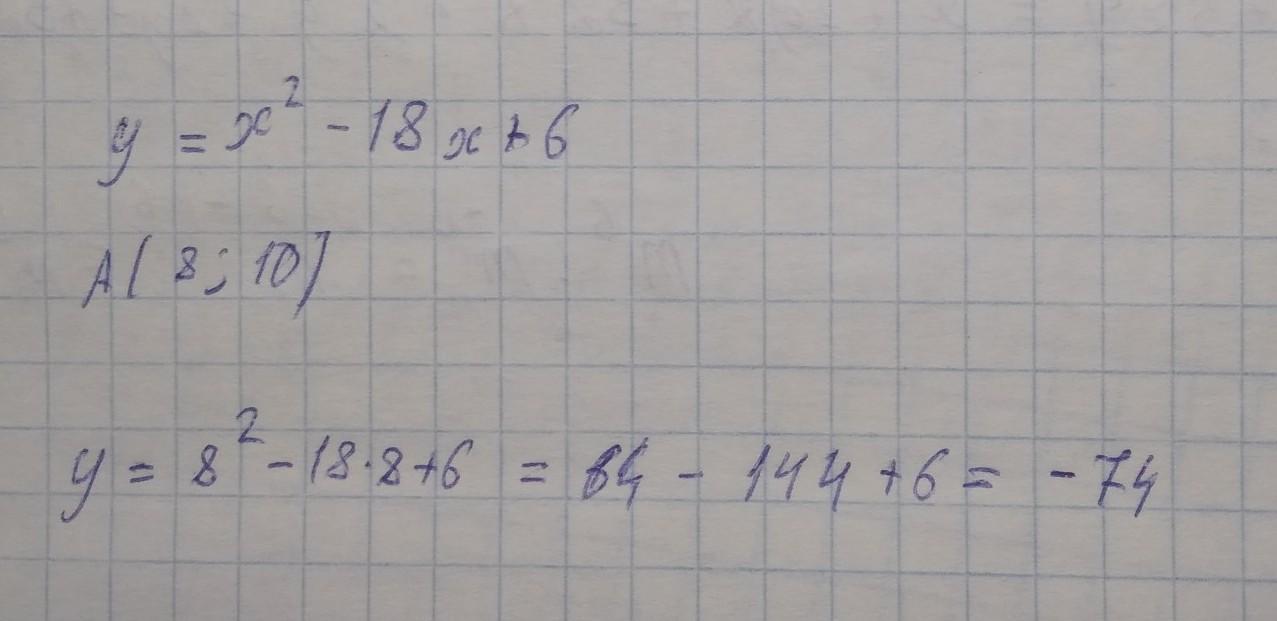 y = x² - 18x + 6
A(8; 10)
y = 8² - 18·8+6 = 64 - 144 + 6 = -74